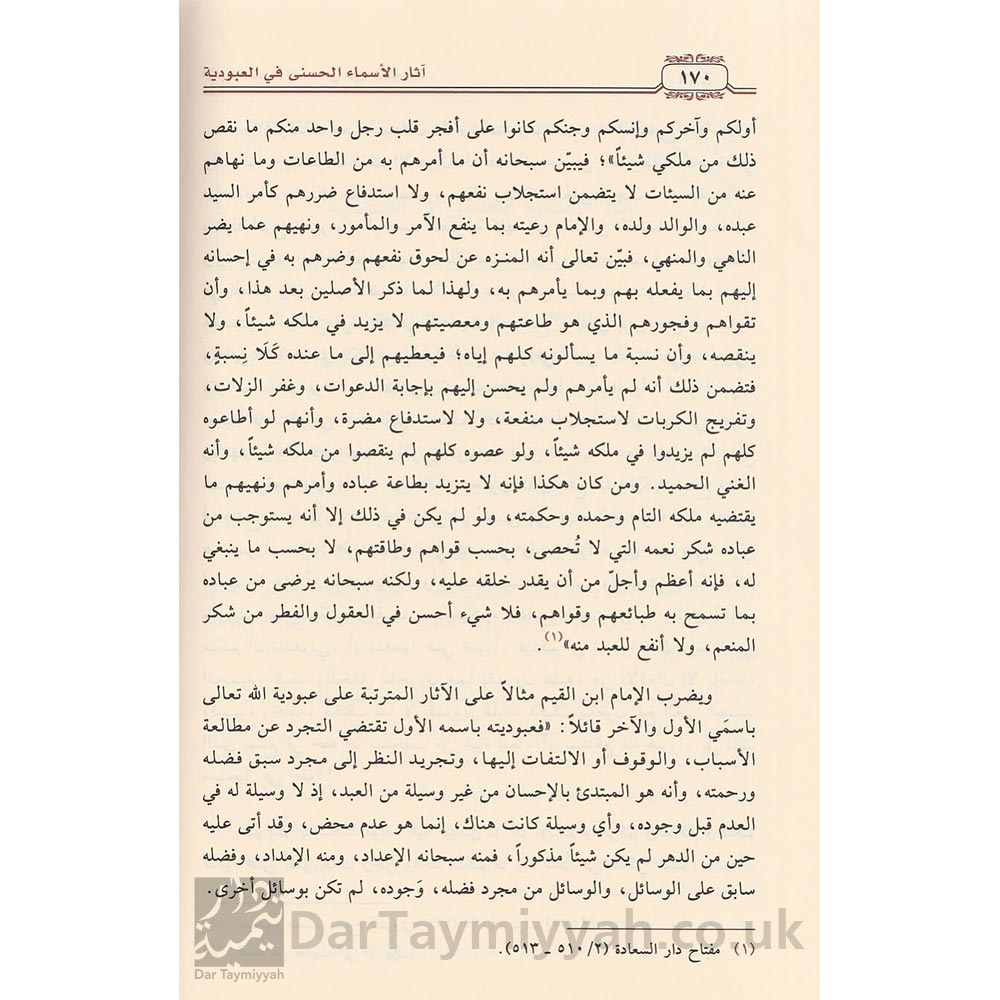 ١٧٠
آثار الأسماء الحسنى في العبودية
أولكم وآخركم وإنسكم وجنكم كانوا على أفجر قلب رجل واحد منكم ما نقص
ذلك من ملكي شيئاً»؛ فيبيّن سبحانه أن ما أمرهم به من الطاعات وما نهاهم
عنه من السيئات لا يتضمن استجلاب نفعهم، ولا استدفاع ضررهم كأمر السيد
عبده، والوالد ولده، والإمام رعيته بما ينفع الآمر والمأمور، ونهيهم عما يضر
الناهي والمنهي، فبيّن تعالى أنه المنـزه عن لحوق نفعهم وضرهم به في إحسانه
إليهم بما يفعله بهم وبما يأمرهم به، ولهذا لما ذكر الأصلين بعد هذا، وأن
تقواهم وفجورهم الذي هو طاعتهم ومعصيتهم لا يزيد في ملكه شيئاً، ولا
ينقصه، وأن نسبة ما يسألونه كلهم إياه؛ فيعطيهم إلى ما عنده كَلَا نِسبةٍ،
فتضمن ذلك أنه لم يأمرهم ولم يحسن إليهم بإجابة الدعوات، وغفر الزلات،
وتفريج الكربات لاستجلاب منفعة، ولا لاستدفاع مضرة، وأنهم لو أطاعوه
كلهم لم يزيدوا في ملكه شيئاً، ولو عصوه كلهم لم ينقصوا من ملكه شيئاً، وأنه
الغني الحميد. ومن كان هكذا فإنه لا يتزيد بطاعة عباده وأمرهم ونهيهم ما
يقتضيه ملكه التام وحمده وحكمته، ولو لم يكن في ذلك إلا أنه يستوجب من
عباده شكر نعمه التي لا تُحصى، بحسب قواهم وطاقتهم، لا بحسب ما ينبغي
له، فإنه أعظم وأجلّ من أن يقدر خلقه عليه، ولكنه سبحانه يرضى من عباده
بما تسمح به طبائعهم وقواهم، فلا شيء أحسن في العقول والفطر من شكر
المنعم، ولا أنفع للعبد منه»(١).
ويضرب الإمام ابن القيم مثالاً على الآثار المترتبة على عبودية الله تعالى
باسمَي الأول والآخر قائلاً: «فعبوديته باسمه الأول تقتضي التجرد عن مطالعة
الأسباب، والوقوف أو الالتفات إليها، وتجريد النظر إلى مجرد سبق فضله
ورحمته، وأنه هو المبتدئ بالإحسان من غير وسيلة من العبد، إذ لا وسيلة له في
العدم قبل وجوده، وأي وسيلة كانت هناك، إنما هو عدم محض، وقد أتى عليه
حين من الدهر لم يكن شيئاً مذكوراً، فمنه سبحانه الإعداد، ومنه الإمداد، وفضله
سابق على الوسائل، والوسائل من مجرد فضله، وَجوده، لم تكن بوسائل أخرى.
(١) مفتاح دار السعادة (٢/ ٥١٠ ـ ٥١٣).
دار تيمية
Dar Taymiyyah
DarTaymiyyah.co.uk